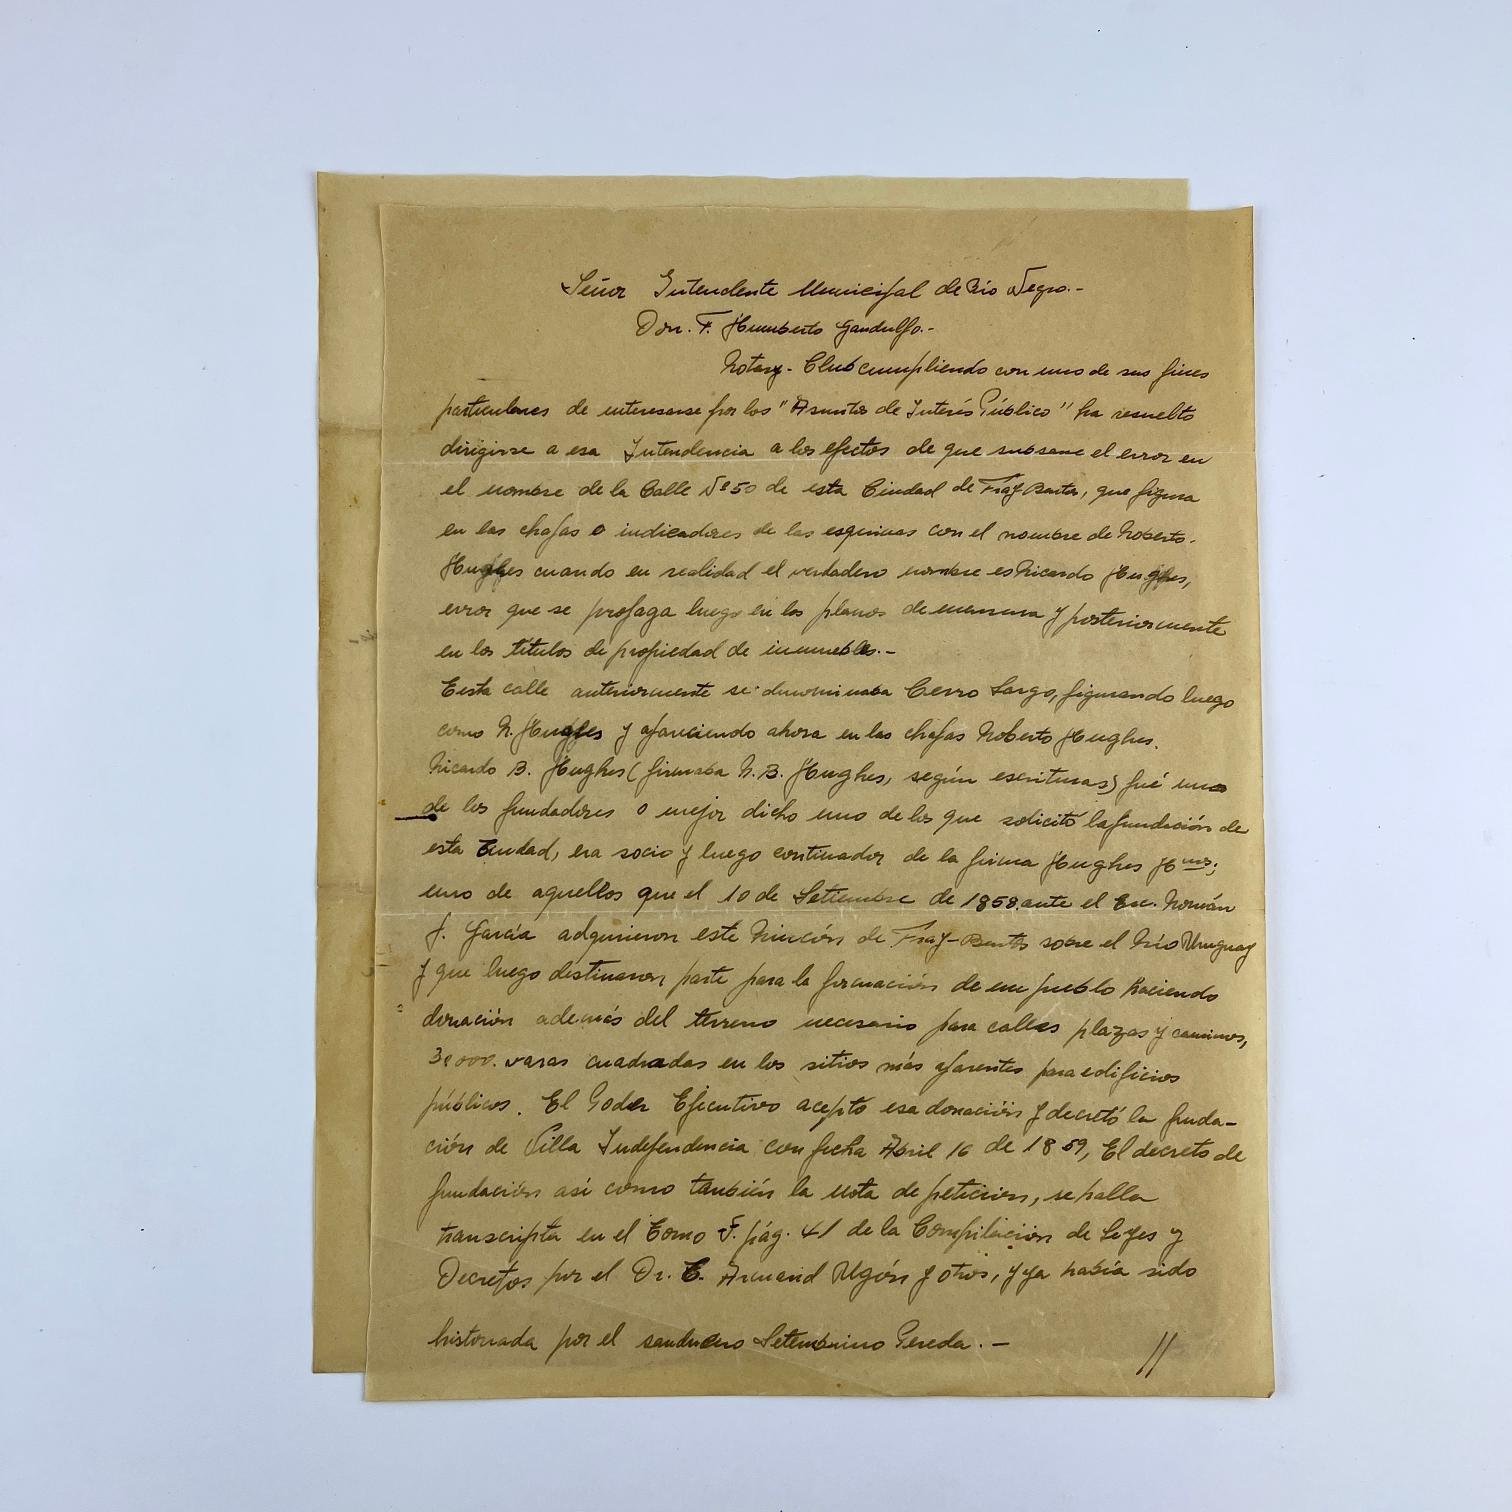 Señor Intendente Municipal de Río Negro.-
Don. F. Humberto Gandulfo.-
Rotary-Club cumpliendo con uno de sus fines
particulares de interesarse por los "Asuntos de Interés Público" ha resuelto
dirigirse a esa Intendencia a los efectos de que subsane el error en
el nombre de la Calle Nº 50 de esta Ciudad de Fray Bentos, que figura
en las chapas o indicadores de las esquinas con el nombre de Roberto.
Hughes cuando en realidad el verdadero nombre es Ricardo Hughes,
error que se propaga luego en los planos de mensura y posteriormente
en los títulos de propiedad de inmuebles.-
Esta calle anteriormente se denominaba Cerro Largo, figurando luego
como R. Hughes y apareciendo ahora en las chapas Roberto Hughes.
Ricardo B. Hughes (firmaba R. B. Hughes, según escrituras) fué uno
de los fundadores o mejor dicho uno de los que solicitó la fundación de
esta Ciudad, era socio y luego continuador de la firma Hughes Hnos;
uno de aquellos que el 10 de Setiembre de 1858 ante el Esc. Román
J. García adquirieron este Rincón de Fray-Bentos sobre el Río Uruguay
y que luego destinaron parte para la formación de un pueblo haciendo
donación además del terreno necesario para calles plazas y caminos,
30000. varas cuadradas en los sitios más aparentes para edificios
públicos. El Poder Ejecutivo aceptó esa donación y decretó la funda-
ción de Villa Independencia con fecha Abril 16 de 1859, El decreto de
fundación así como también la nota de petición, se halla
transcripta en el Tomo pág. 41 de la Compilación de Leyes y
Decretos por el Dr. E. Armand Ugón y otros, y ya había sido
historiada por el sanducero Setembrino Pereda.-
//